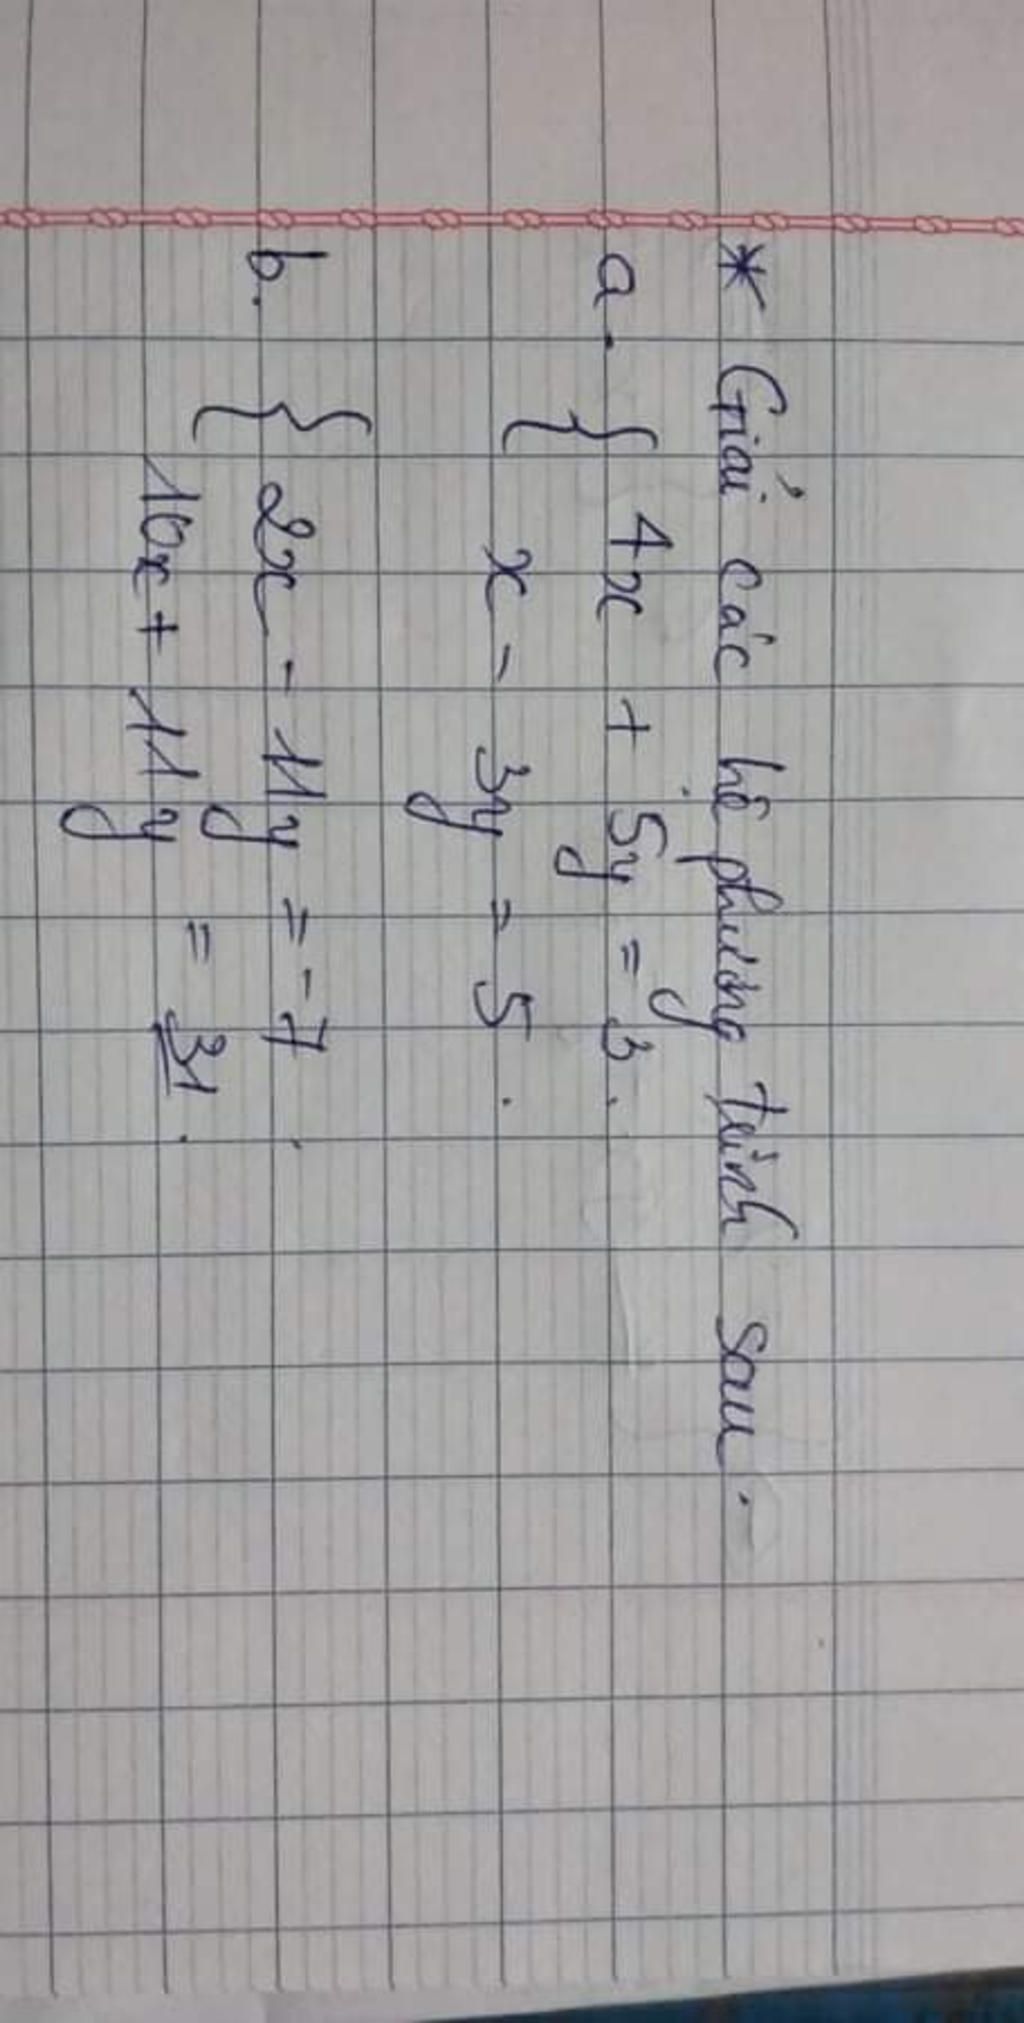 * Giải các hệ phương trình sau.
a. { 4x + 5y = 3.
x - 3y = 5.
b. { 2x - 11y = -7.
10x + 11y = 31.